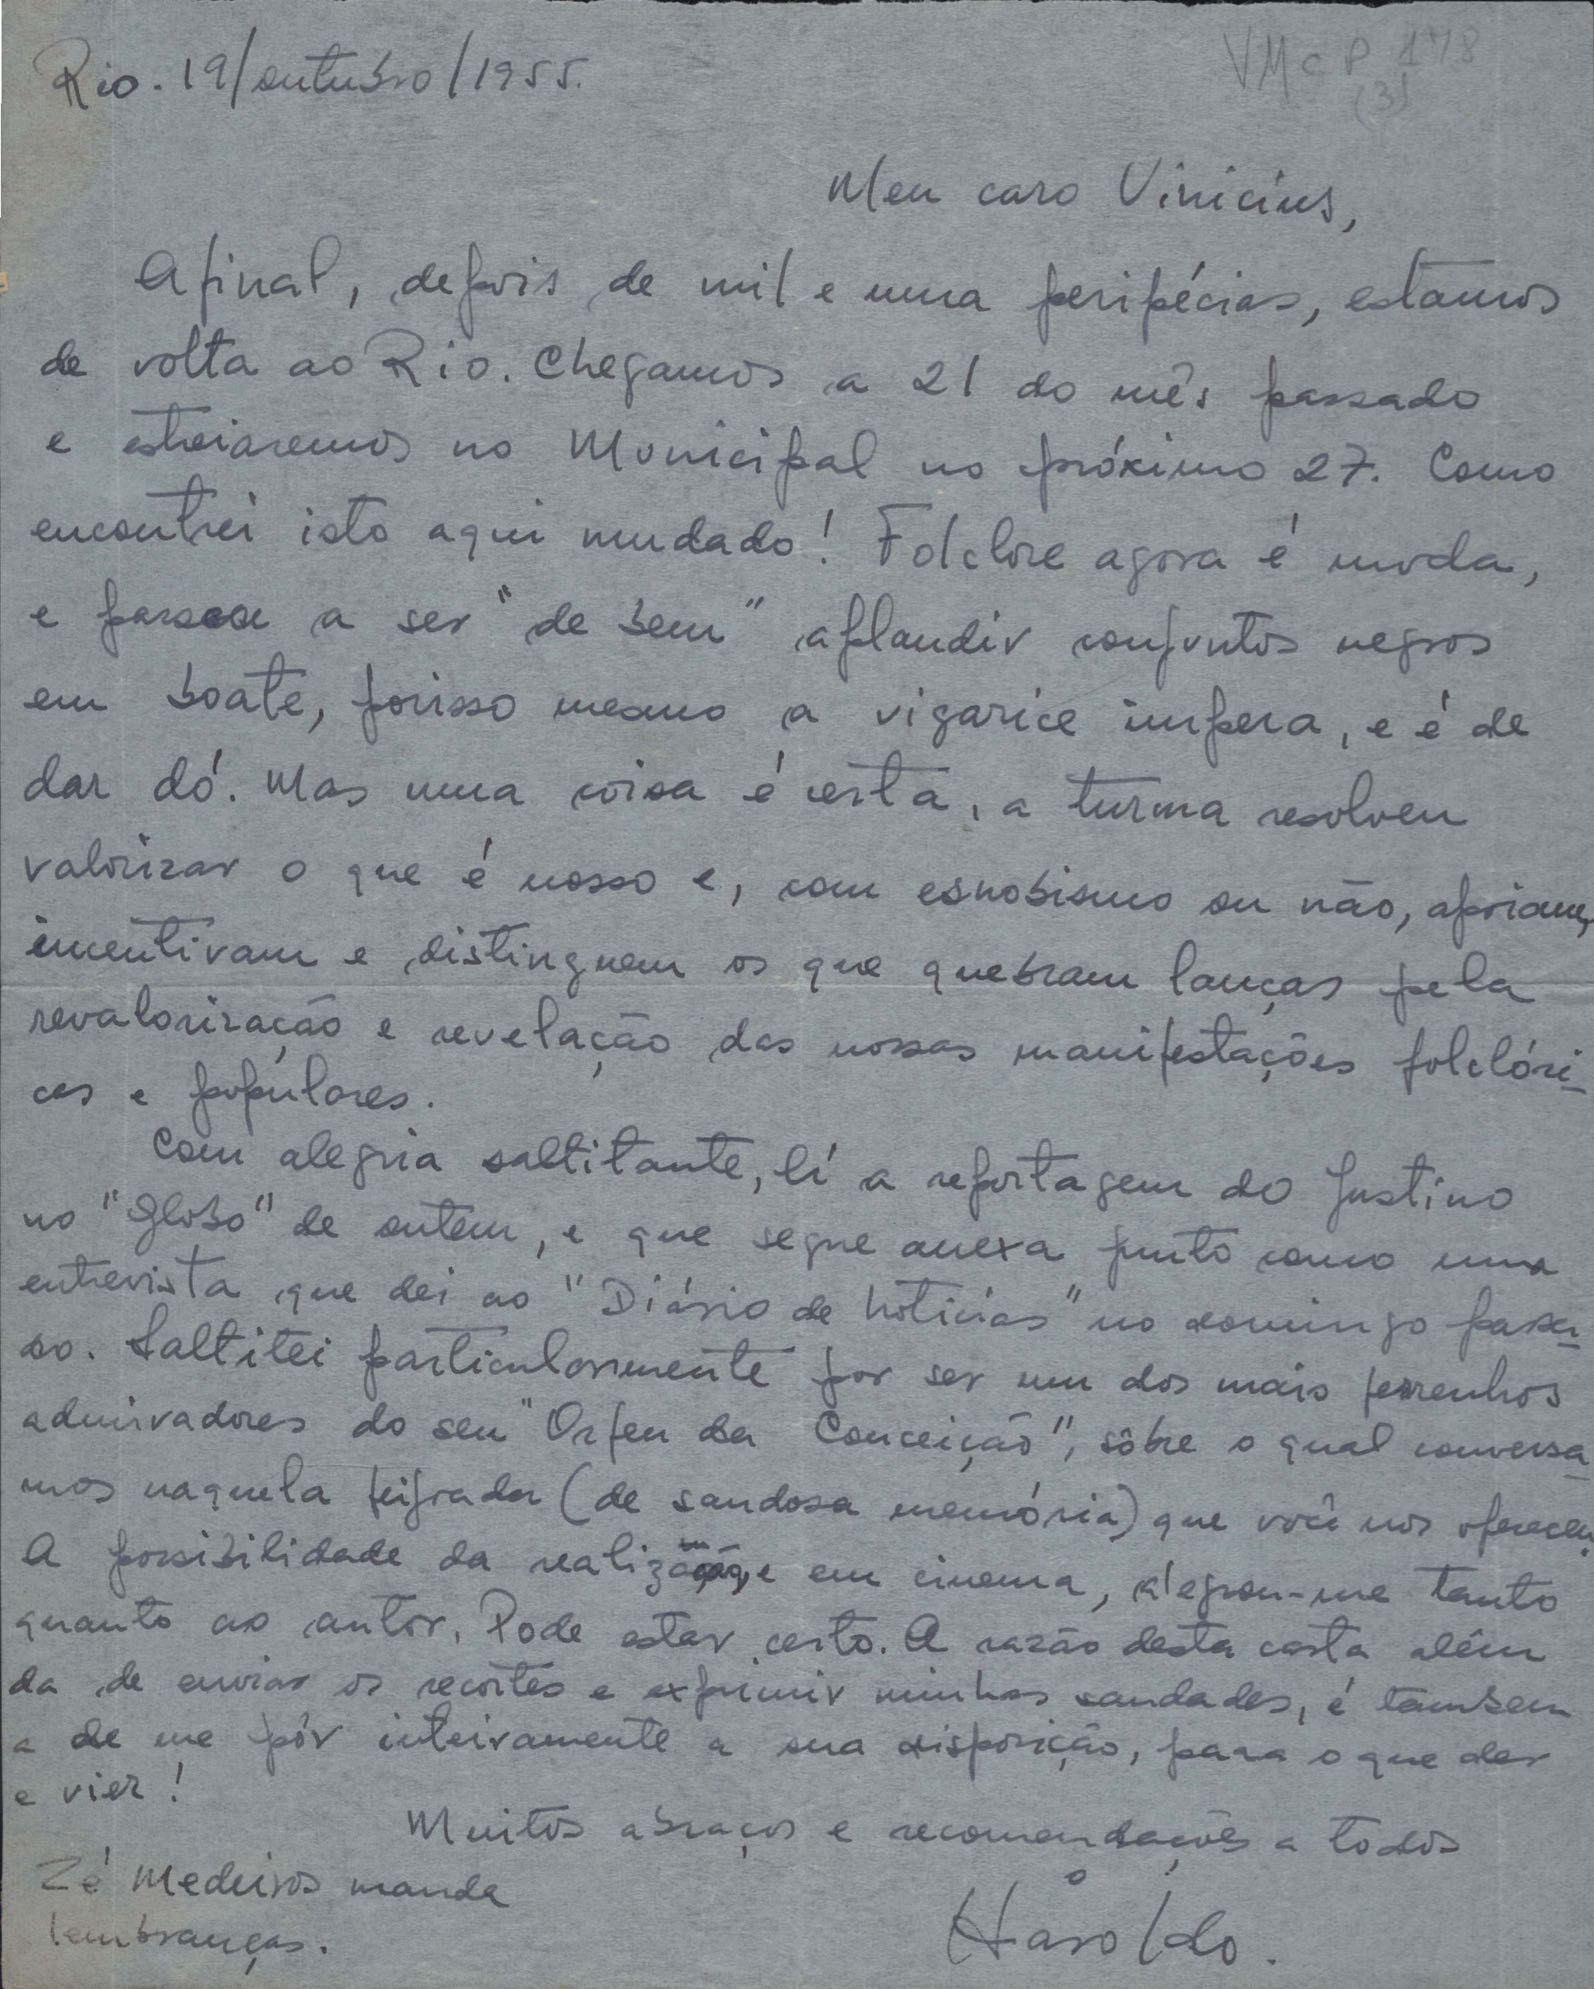 Rio. 19/outubro/1955.
VMcP 178
(3)
Meu caro Vinicius,
Afinal, depois de mil e uma peripécias, estamos
de volta ao Rio. Chegamos a 21 do mês passado
e estreiaremos no Municipal no próximo 27. Como
encontrei isto aqui mudado! Folclore agora é moda,
e passou a ser "de bem" aplaudir conjuntos negros
em boate, porisso mesmo a vigarice impera, e é de
dar dó. Mas uma coisa é certa, a turma resolveu
valorizar o que é nosso e, com esnobismo ou não, apoiam,
incentivam e distinguem os que quebram lanças pela
revalorização e revelação das nossas manifestações folclóri-
cas e populares.
Com alegria saltitante, lí a reportagem do Justino
no "Globo" de ontem, e que segue anexa junto como uma
entrevista que dei ao "Diário de Notícias" no domingo passa-
do. Saltitei particularmente por ser um dos mais ferrenhos
admiradores do seu "Orfeu da Conceição", sôbre o qual conversa-
mos naquela feijoada (de saudosa memória) que você nos ofereceu.
A possibilidade da em cinema, alegrou-me tanto
quanto ao autor. Pode estar certo. A razão desta carta além
da de enviar os recortes e exprimir minhas saudades, é tambem
a de me pôr inteiramente a sua disposição, para o que der
e vier!
Muitos abraços e recomendações a todos
Haroldo.
Zé Medeiros manda
lembranças.